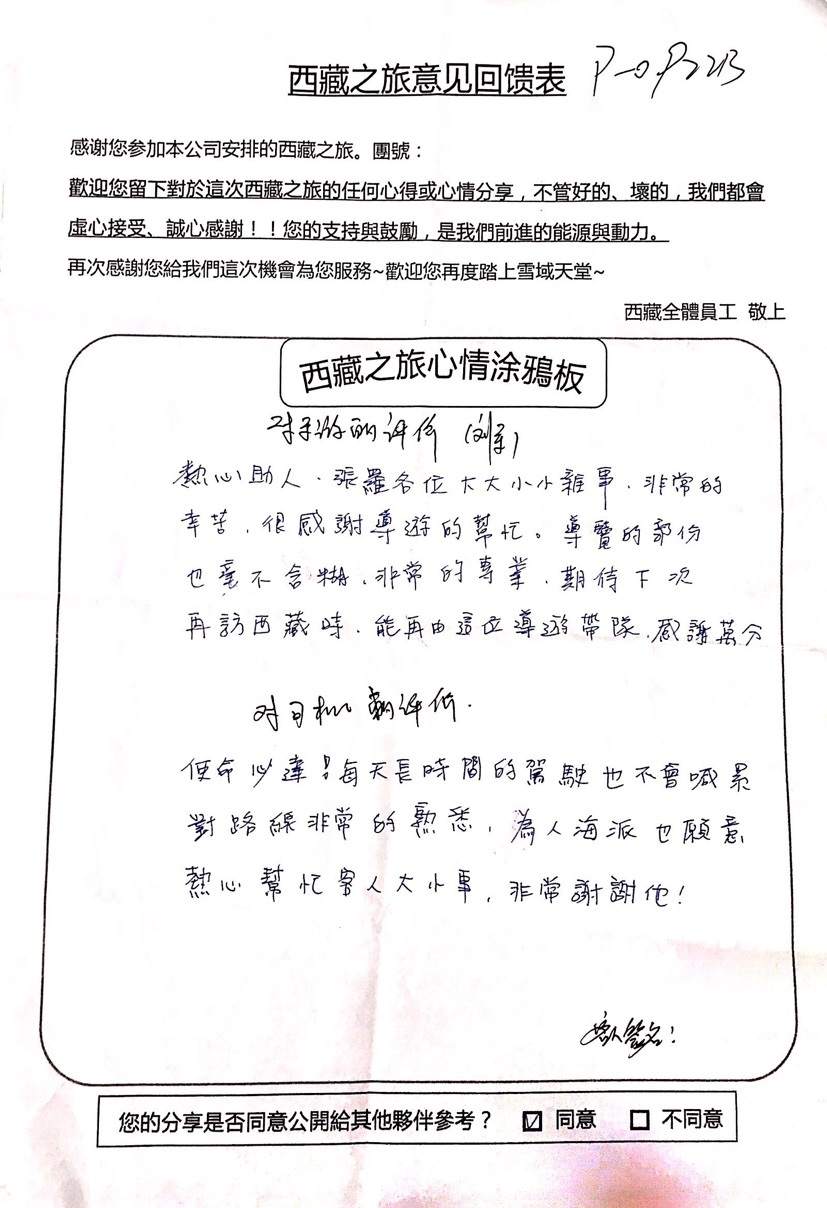 西藏之旅意见回馈表
感谢您参加本公司安排的西藏之旅。團號：
歡迎您留下對於這次西藏之旅的任何心得或心情分享，不管好的、壞的，我們都會
虛心接受、誠心感謝！！您的支持與鼓勵，是我們前進的能源與動力。
再次感謝您給我們這次機會為您服務~歡迎您再度踏上雪域天堂~
西藏全體員工 敬上
西藏之旅心情涂鴉板
对导游的评价
熱心助人．張羅各位大大小小雜事．非常的
辛苦．很感謝導遊的幫忙。導覽的部份
也毫不含糊．非常的專業．期待下次
再訪西藏時．能再由這位導遊帶隊．感謝萬分
对司机的评价．
使命必達！每天長時間的駕駛也不會喊累
對路線非常的熟悉，為人海派也願意
熱心幫忙客人大小事，非常謝謝他！
客人签名：
您的分享是否同意公開給其他夥伴參考？ ☑ 同意 □ 不同意